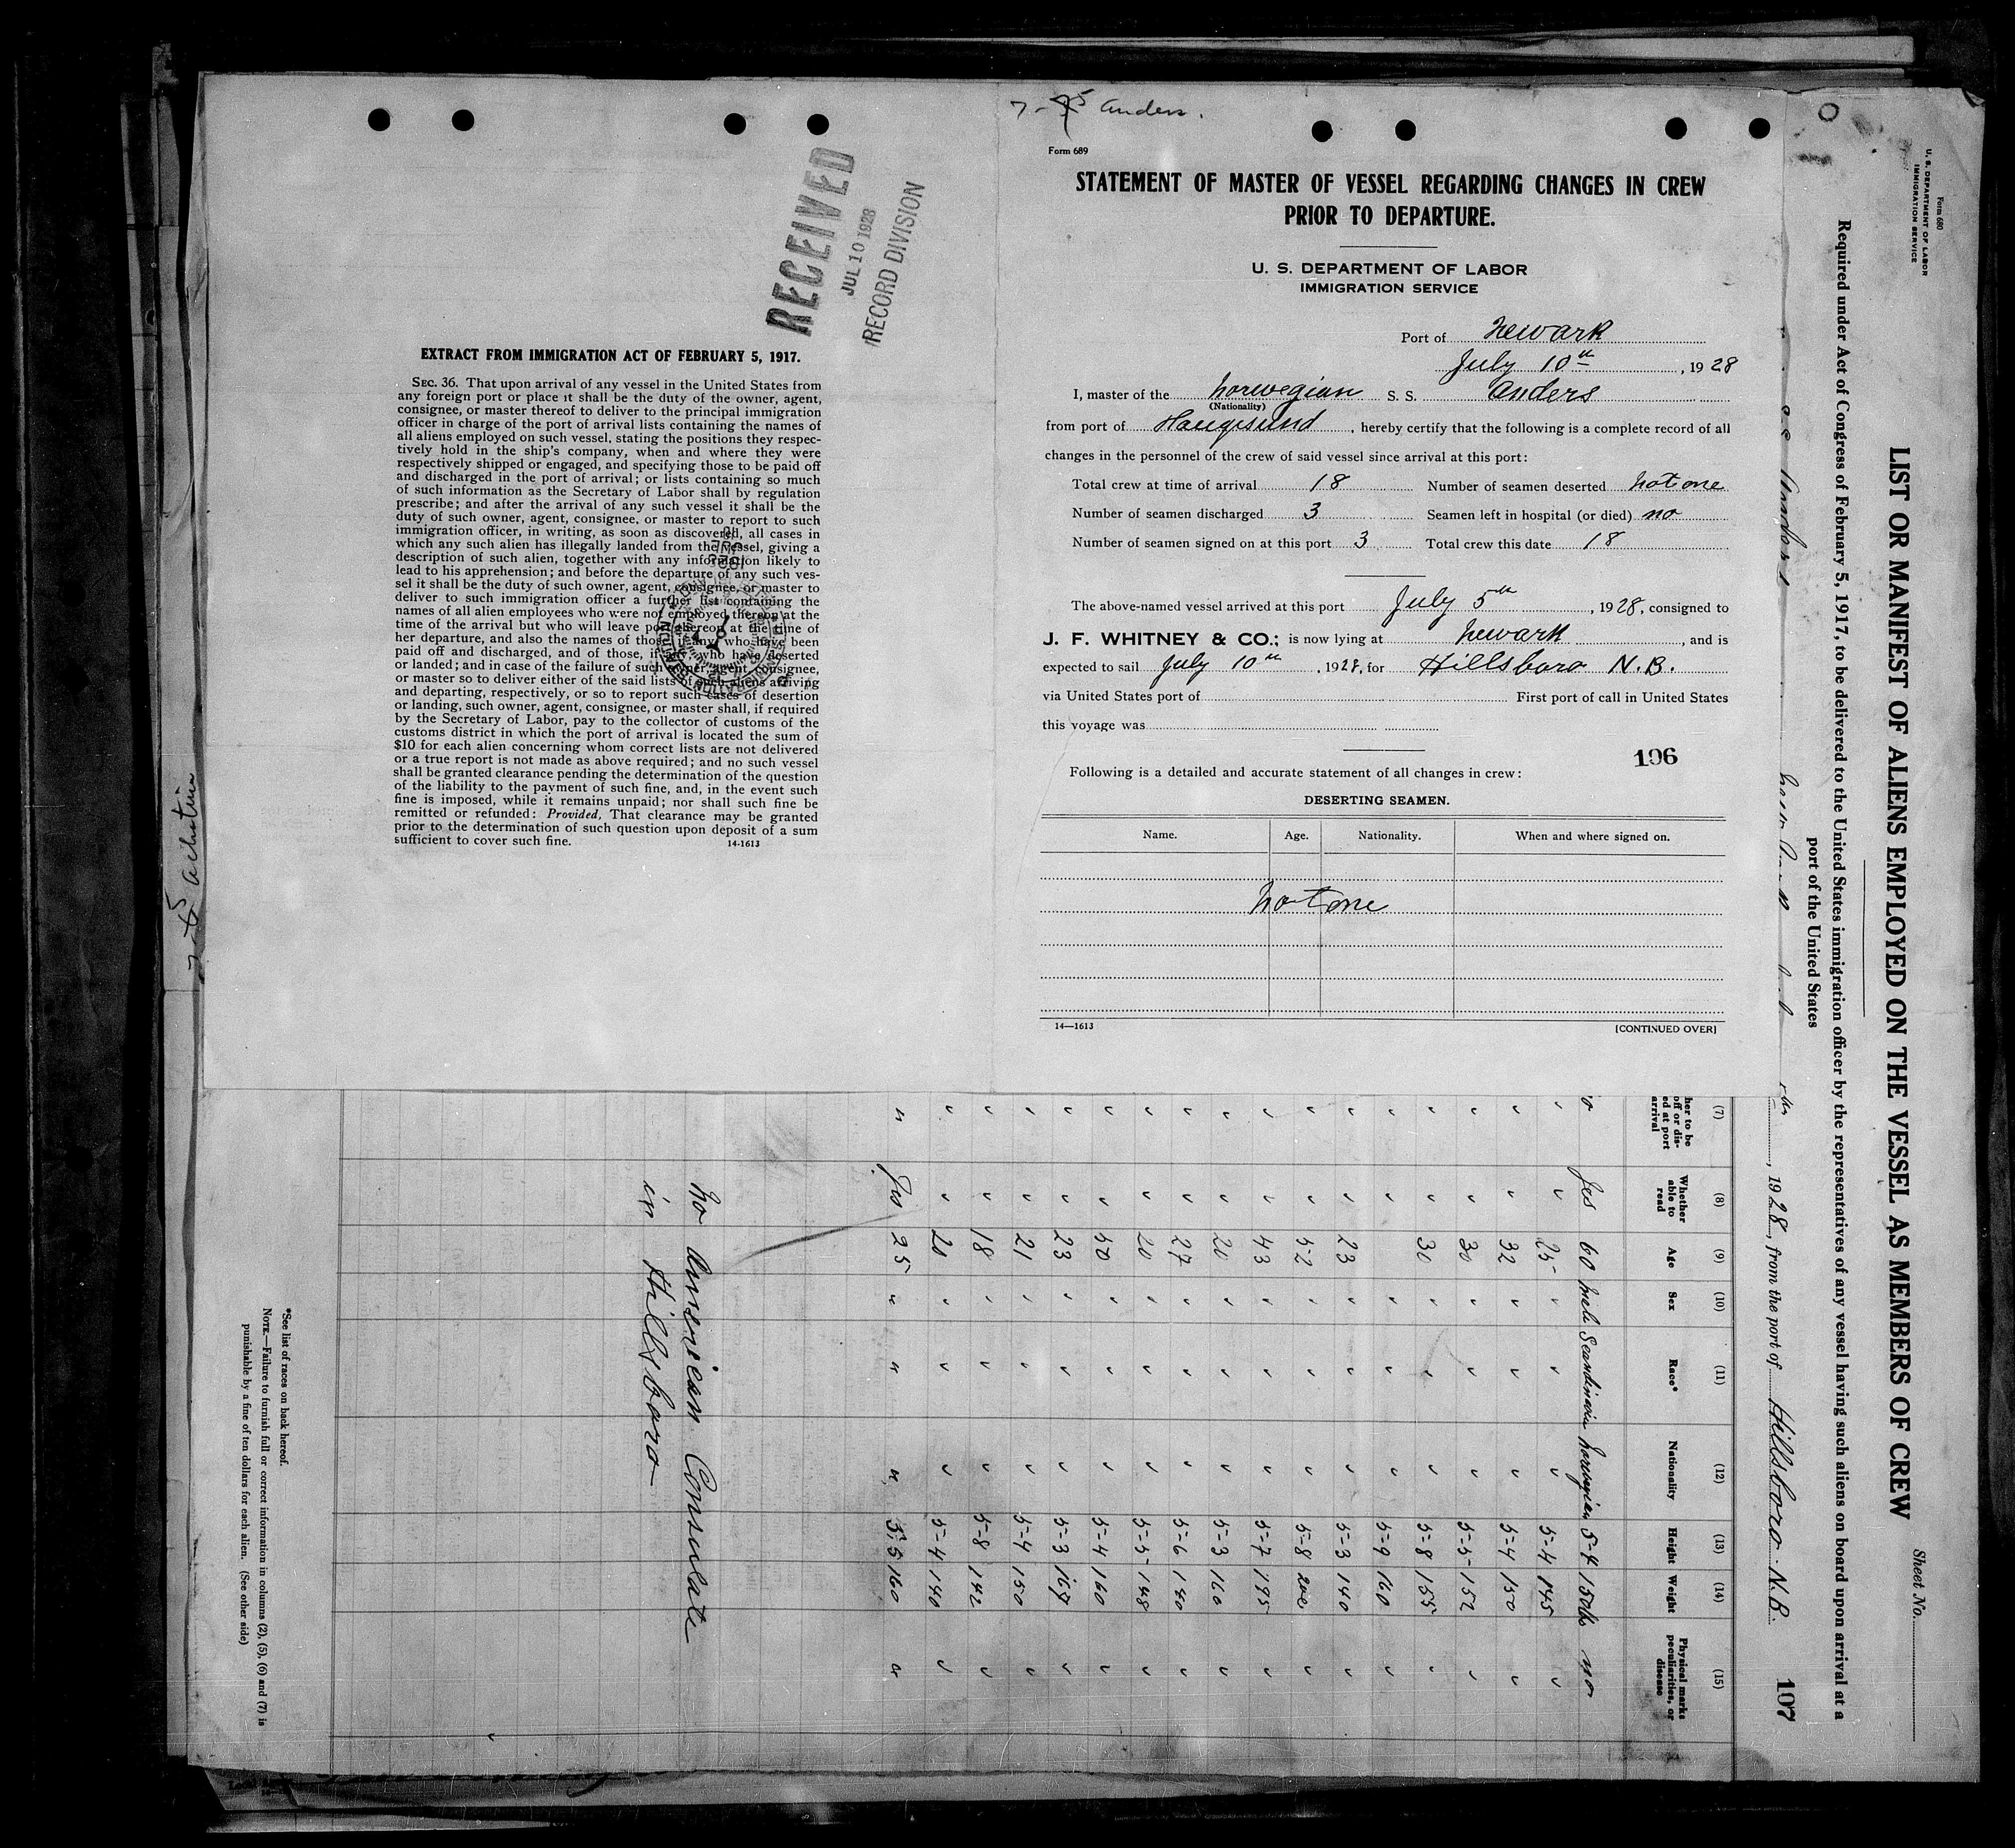 7-5 Anders.
Form 689
STATEMENT OF MASTER OF VESSEL REGARDING CHANGES IN CREW
PRIOR TO DEPARTURE.
U. S. DEPARTMENT OF LABOR
IMMIGRATION SERVICE
Port of Newark
July 10th, 1928
I, master of the Norwegian S. S. Anders
(Nationality)
from port of Haugesund, hereby certify that the following is a complete record of all
changes in the personnel of the crew of said vessel since arrival at this port:
Total crew at time of arrival 18 Number of seamen deserted not one
Number of seamen discharged 3 Seamen left in hospital (or died) no
Number of seamen signed on at this port 3 Total crew this date 18
The above-named vessel arrived at this port July 5th, 1928, consigned to
J. F. WHITNEY & CO.; is now lying at Newark, and is
expected to sail July 10th, 1928, for Hillsboro N.B.
via United States port of First port of call in United States
this voyage was
196
Following is a detailed and accurate statement of all changes in crew:
DESERTING SEAMEN.
Name. Age. Nationality. When and where signed on.
not one
14—1613 [CONTINUED OVER]
RECEIVED
JUL 10 1928
RECORD DIVISION
EXTRACT FROM IMMIGRATION ACT OF FEBRUARY 5, 1917.
SEC. 36. That upon arrival of any vessel in the United States from
any foreign port or place it shall be the duty of the owner, agent,
consignee, or master thereof to deliver to the principal immigration
officer in charge of the port of arrival lists containing the names of
all aliens employed on such vessel, stating the positions they respec-
tively hold in the ship's company, when and where they were
respectively shipped or engaged, and specifying those to be paid off
and discharged in the port of arrival; or lists containing so much
of such information as the Secretary of Labor shall by regulation
prescribe; and after the arrival of any such vessel it shall be the
duty of such owner, agent, consignee, or master to report to such
immigration officer, in writing, as soon as discovered, all cases in
which any such alien has illegally landed from the vessel, giving a
description of such alien, together with any information likely to
lead to his apprehension; and before the departure of any such ves-
sel it shall be the duty of such owner, agent, consignee, or master to
deliver to such immigration officer a further list containing the
names of all alien employees who were not employed thereon at the
time of the arrival but who will leave port thereon at the time of
her departure, and also the names of those, if any, who have been
paid off and discharged, and of those, if any, who have deserted
or landed; and in case of the failure of such owner, agent, consignee,
or master so to deliver either of the said lists of such aliens arriving
and departing, respectively, or so to report such cases of desertion
or landing, such owner, agent, consignee, or master shall, if required
by the Secretary of Labor, pay to the collector of customs of the
customs district in which the port of arrival is located the sum of
$10 for each alien concerning whom correct lists are not delivered
or a true report is not made as above required; and no such vessel
shall be granted clearance pending the determination of the question
of the liability to the payment of such fine, and, in the event such
fine is imposed, while it remains unpaid; nor shall such fine be
remitted or refunded: Provided, That clearance may be granted
prior to the determination of such question upon deposit of a sum
sufficient to cover such fine. 14-1613
Form 680
U. S. DEPARTMENT OF LABOR
IMMIGRATION SERVICE
Sheet No.
LIST OR MANIFEST OF ALIENS EMPLOYED ON THE VESSEL AS MEMBERS OF CREW
Required under Act of Congress of February 5, 1917, to be delivered to the United States immigration officer by the representatives of any vessel having such aliens on board upon arrival at a
port of the United States
Anders
, 1928, from the port of Hillsboro N.B. 197
(7) (8) (9) (10) (11) (12) (13) (14) (15)
her to be off or dis- ed at port arrival
Whether able to read
Age
Sex
Race*
Nationality
Height
Weight
Physical marks, peculiarities, or disease
Yes 60 Male Scandinavia Norwegian 5-4 150 lbs no
" " 25 " " " 5-4 145 "
" " 32 " " " 5-4 150 "
" " 30 " " " 5-5 152 "
" " 30 " " " 5-8 155 "
" " " " " 5-9 160 "
" " 23 " " " 5-3 140 "
" " 52 " " " 5-8 202 "
" " 43 " " " 5-7 195 "
" " 20 " " " 5-3 160 "
" " 27 " " " 5-6 140 "
" " 20 " " " 5-5 148 "
" " 50 " " " 5-4 160 "
" " 23 " " " 5-3 167 "
" " 21 " " " 5-4 150 "
" " 18 " " " 5-8 142 "
" " 20 " " " 5-4 140 "
" Yes 25 " " " 5-5 160 "
No American Consulate
in Hillsboro
*See list of races on back hereof.
NOTE.—Failure to furnish full or correct information in columns (2), (5), (6) and (7) is
punishable by a fine of ten dollars for each alien. (See other side)